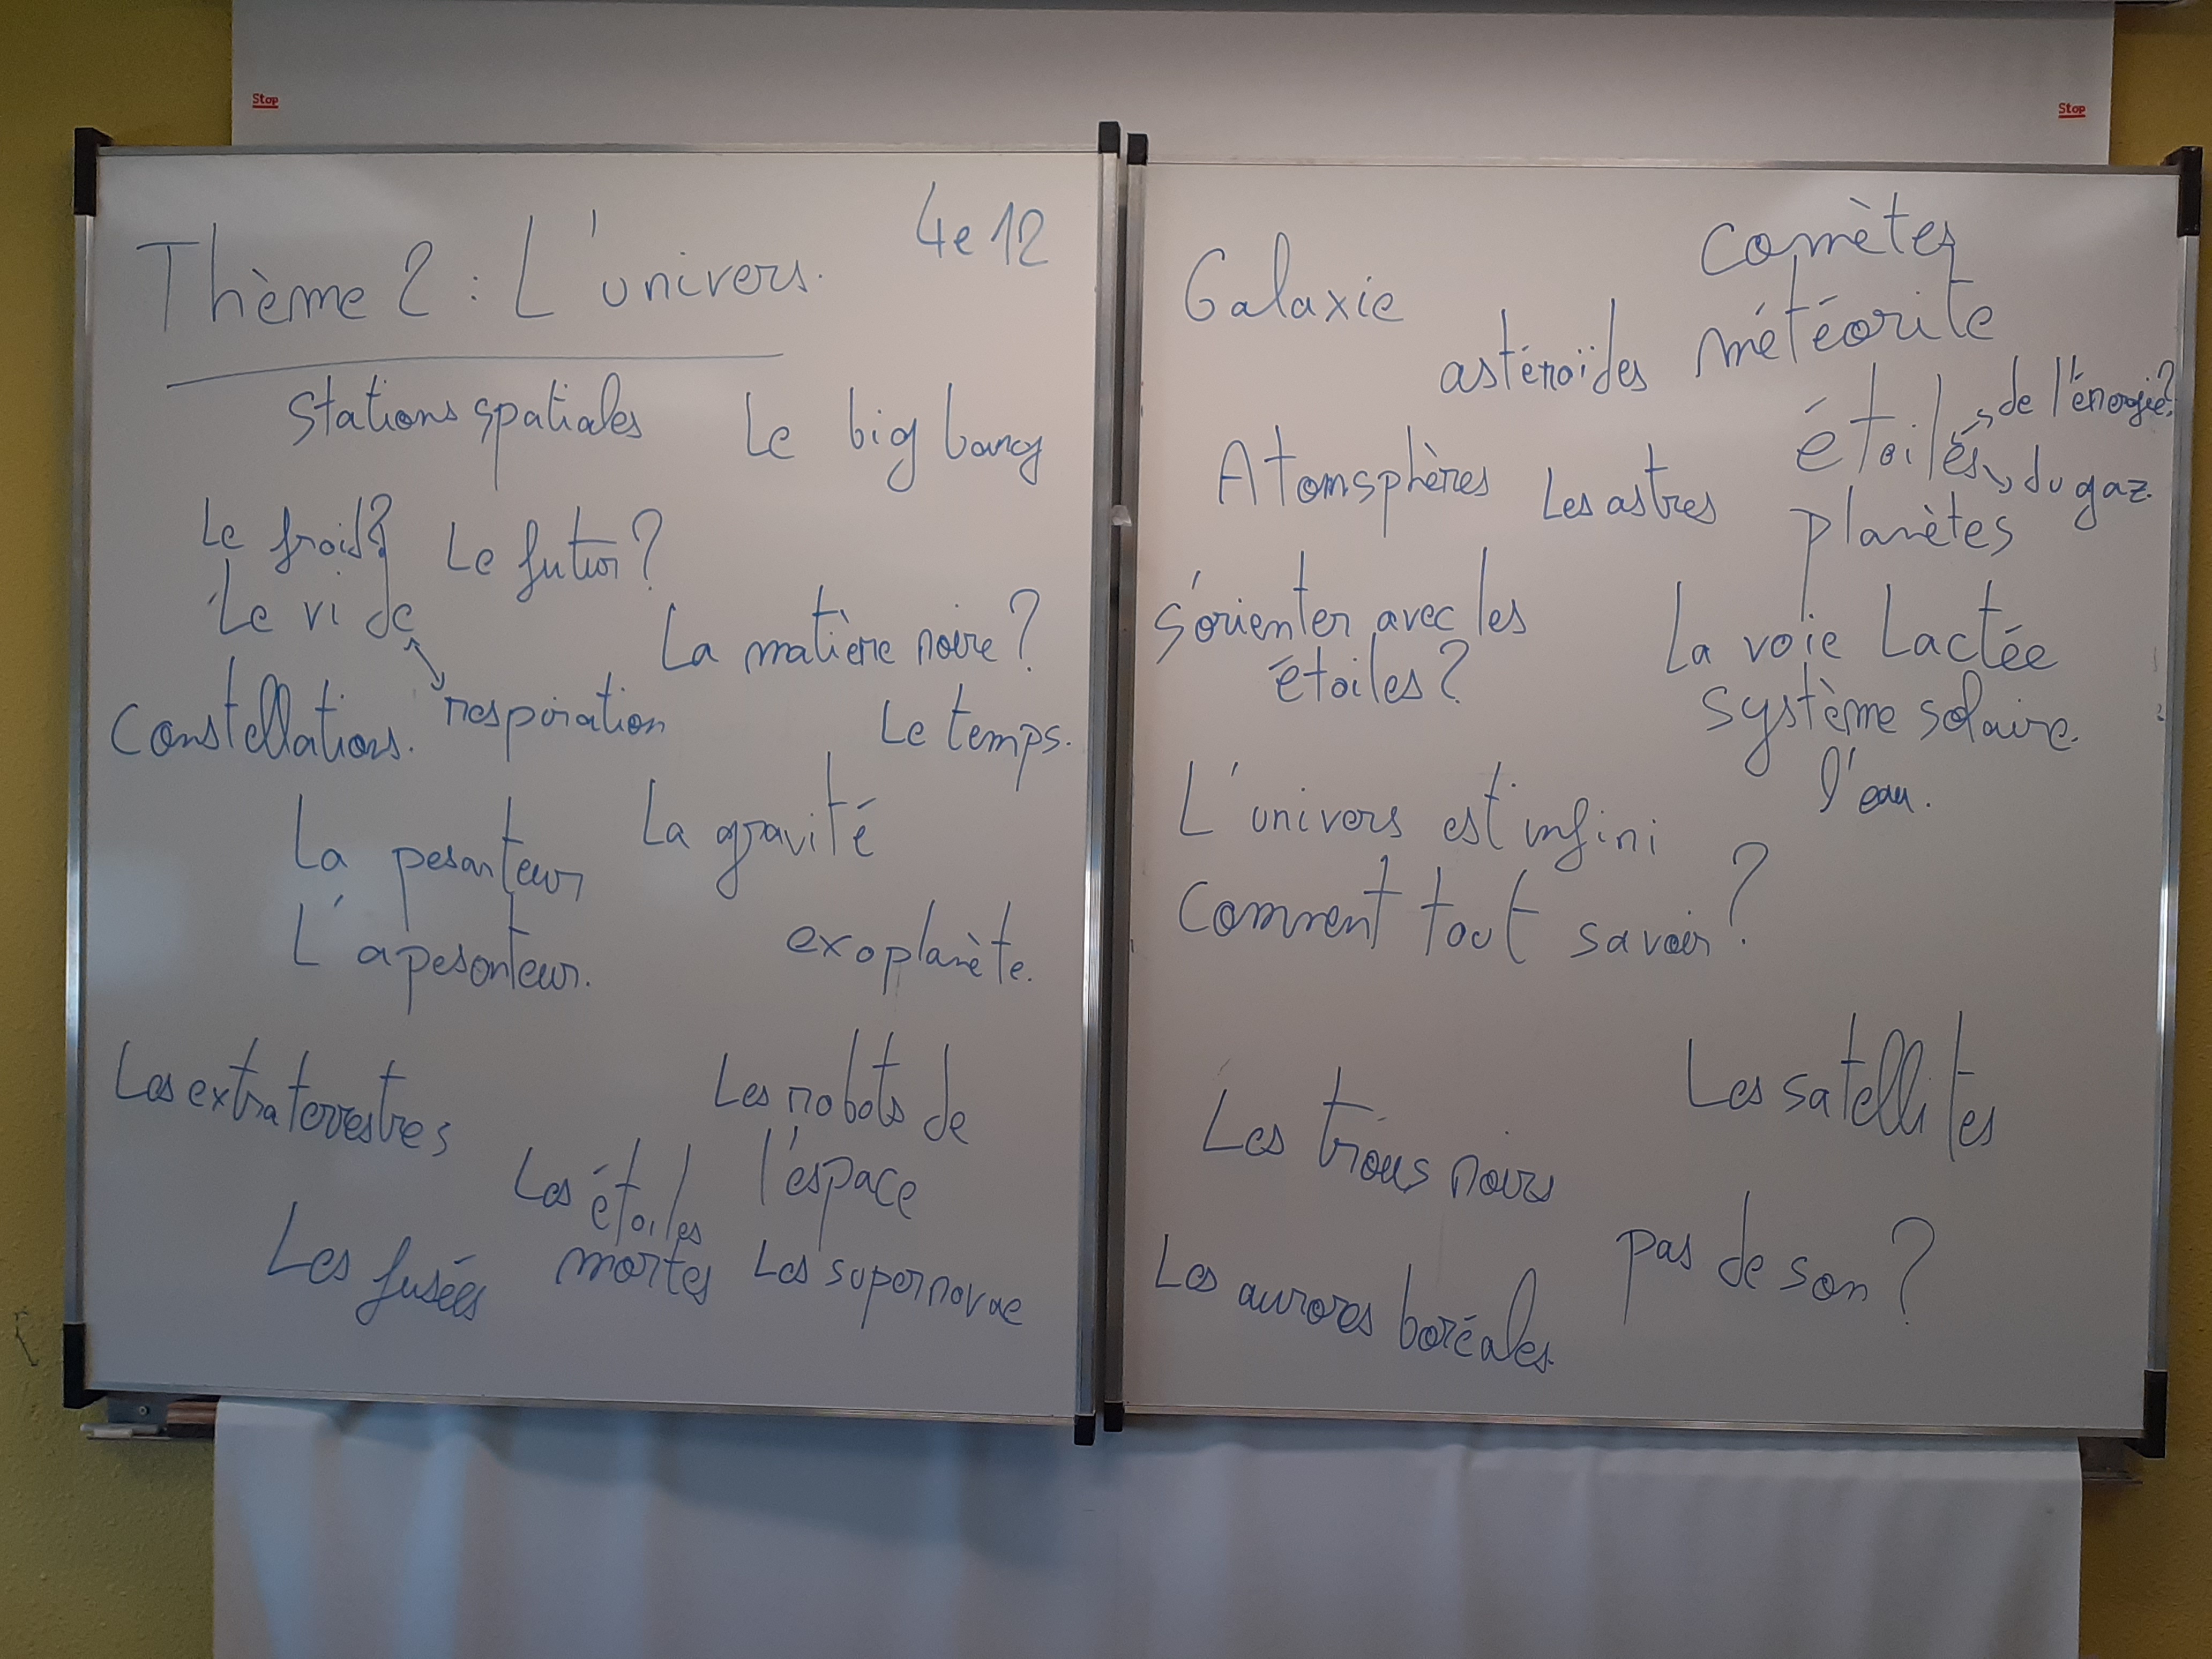 Stop
Stop
4e12
Thème 2 : L'univers.
Stations spatiales
Le big bang
Le froid?
Le futur ?
Le vide
La matière noire ?
Constellations.
respiration
Le temps.
La gravité
La pesanteur
L'apesanteur.
exoplanète.
Les extraterrestres
Les robots de
l'espace
Les étoiles
mortes
Les fusées
Les supernovae
Comètes
Galaxie
météorite
astéroïdes
de l'énergie?
étoiles
du gaz
Atomsphères
Les astres
planètes
s'orienter avec les
étoiles ?
La voie Lactée
système solaire.
l'eau.
L'univers est infini
Comment tout savoir ?
Les satellites
Les trous noirs
pas de son ?
Les aurores boréales.